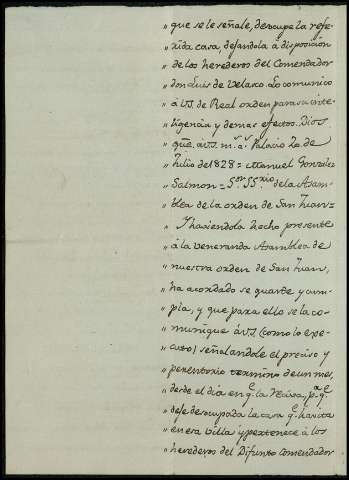 " que se le señale, desocupe la refe-
" rida casa, dejandola á disposición
" de los herederos del Comendador
" don Luis de Velasco. Lo comunico
" á V.S. de Real orden para su inte-
" ligencia y demas efectos. Dios
" gue. á V.S. m.s a.s Palacio de
" Julio de 1828 = Manuel Gonzalez
" Salmon = S.or SS.rio de la Asam-
" blea de la orden de San Juan=
" Y haviendola hecho presente
" á la veneranda Asamblea de
" nuestra orden de San Juan,
" ha acordado se guarde y cum-
" pla, y que para ello se la co-
" munique á V.S. (como lo ejec-
" cuto) señalandole el preciso y
" perentorio termino de un mes,
" desde el dia en q.e la reciva, p.a q.e
" deje desocupada la casa q.e havita
" en esa villa y pertenece á los
" herederos del Difunto Comendador